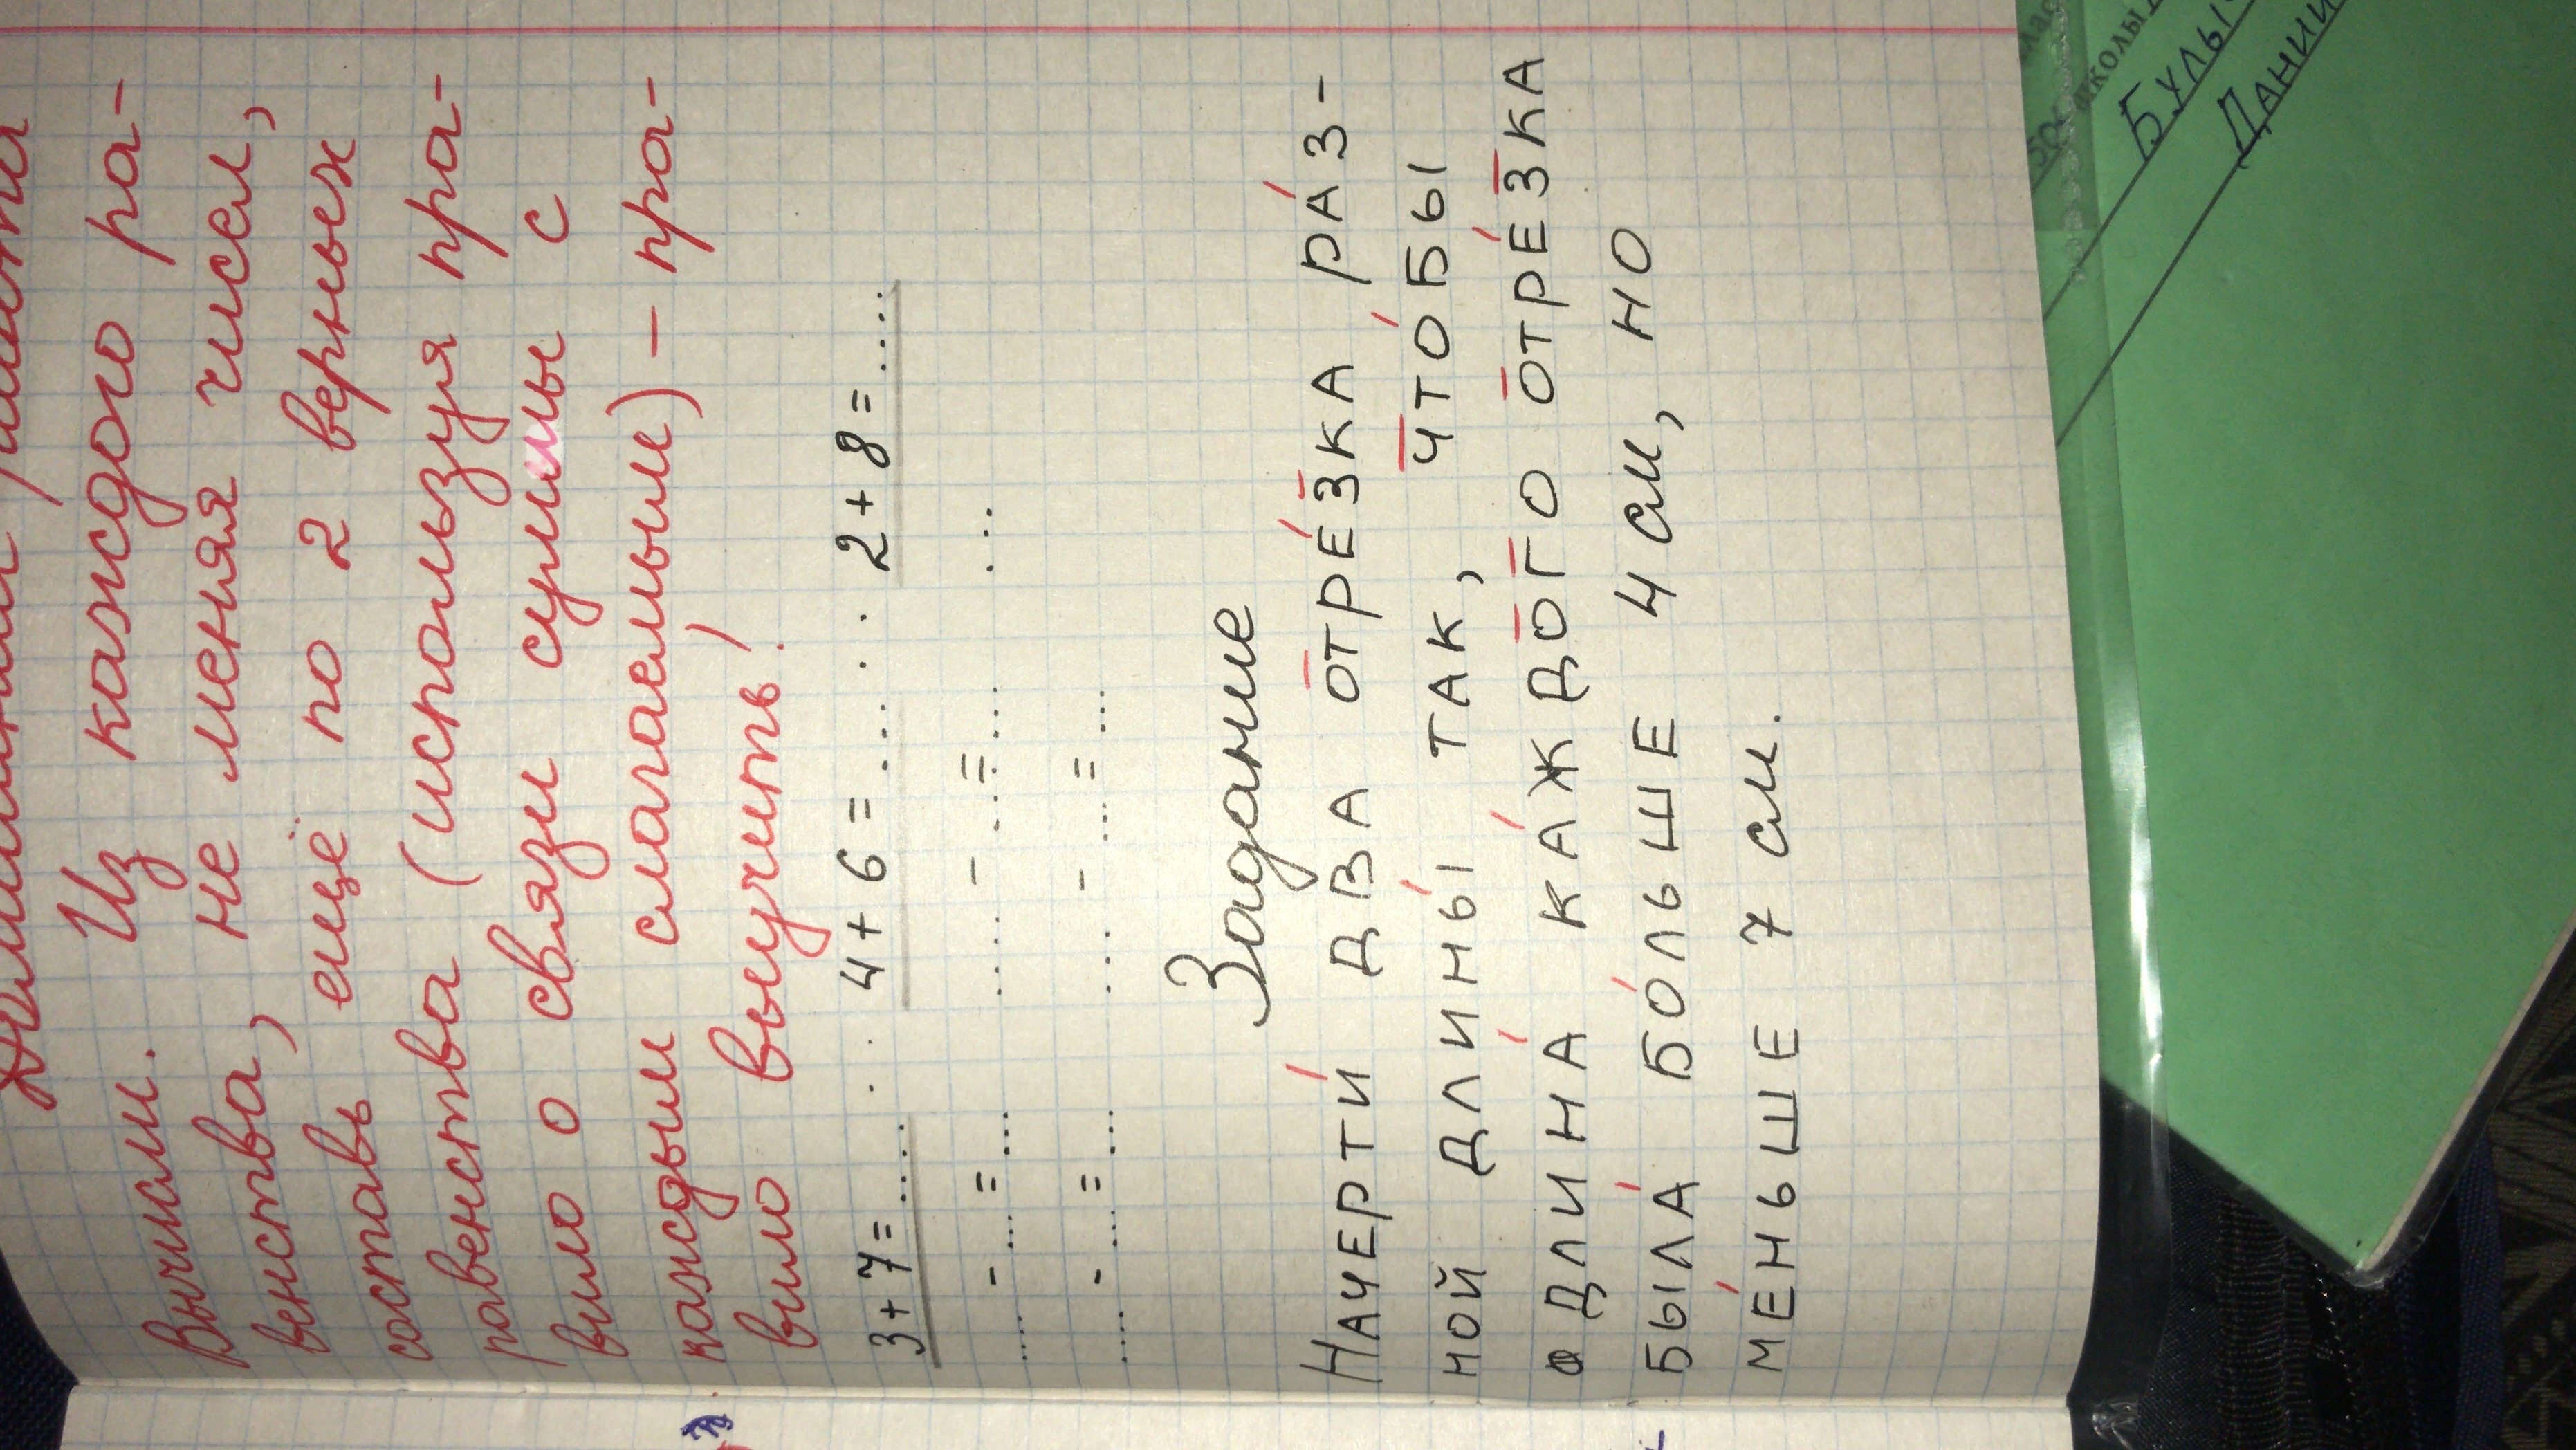 Вычисли. Из каждого ра-
венства, не меняя чисел,
составь ещё по 2 верных
равенства (используя пра-
вило о связи суммы с
каждым слагаемым) – пра-
вило выучить!
3+7=.... .. 4+6=.... .. 2+8=....
.... - ...=... .... - ...=... ...
.... - ...=... ... - ...=...
Задание
НАЧЕРТИ́ ДВА ОТРЕ́ЗКА РА́З-
НОЙ ДЛИНЫ́ ТАК, ЧТО́БЫ
ДЛИНА́ КА́ЖДОГО ОТРЕ́ЗКА
БЫЛА́ БО́ЛЬШЕ 4 см, НО
МЕ́НЬШЕ 7 см.
ШКОЛЫ